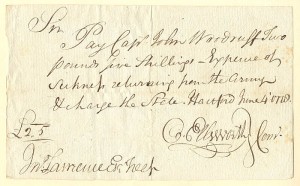 Sir
Pay Capt John Woodruff Two
pounds five Shillings – Expence of
Sickness returning from the Army
& charge the State. Hartford June 4th
£2.5
O. Ellsworth
Jno Lawrence Esqr